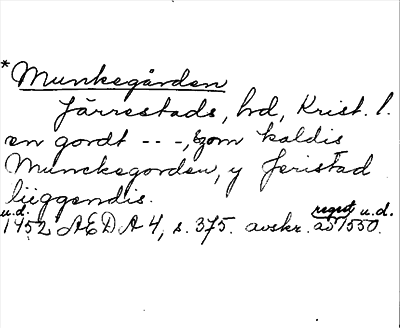 *Munkegården
Järrestads, hd, Krist. l.
en gordt - - -, som kaldis
Munckegorden, y Jeristad
liiggendis.
u.d. regest u.d.
1452 AEDA 4, s. 375. avskr. av 1550.